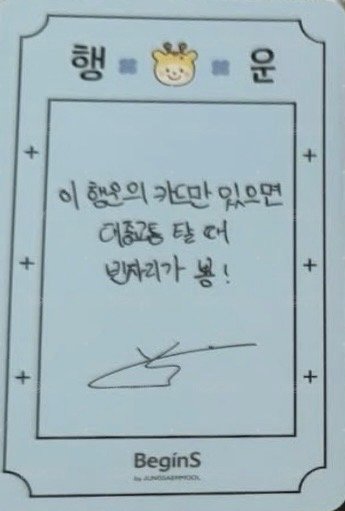 행 운
이 행운의 카드만 있으면
대중교통 탈 때
빈자리가 뿅!
BeginS
by JUNGSAEMMOOL